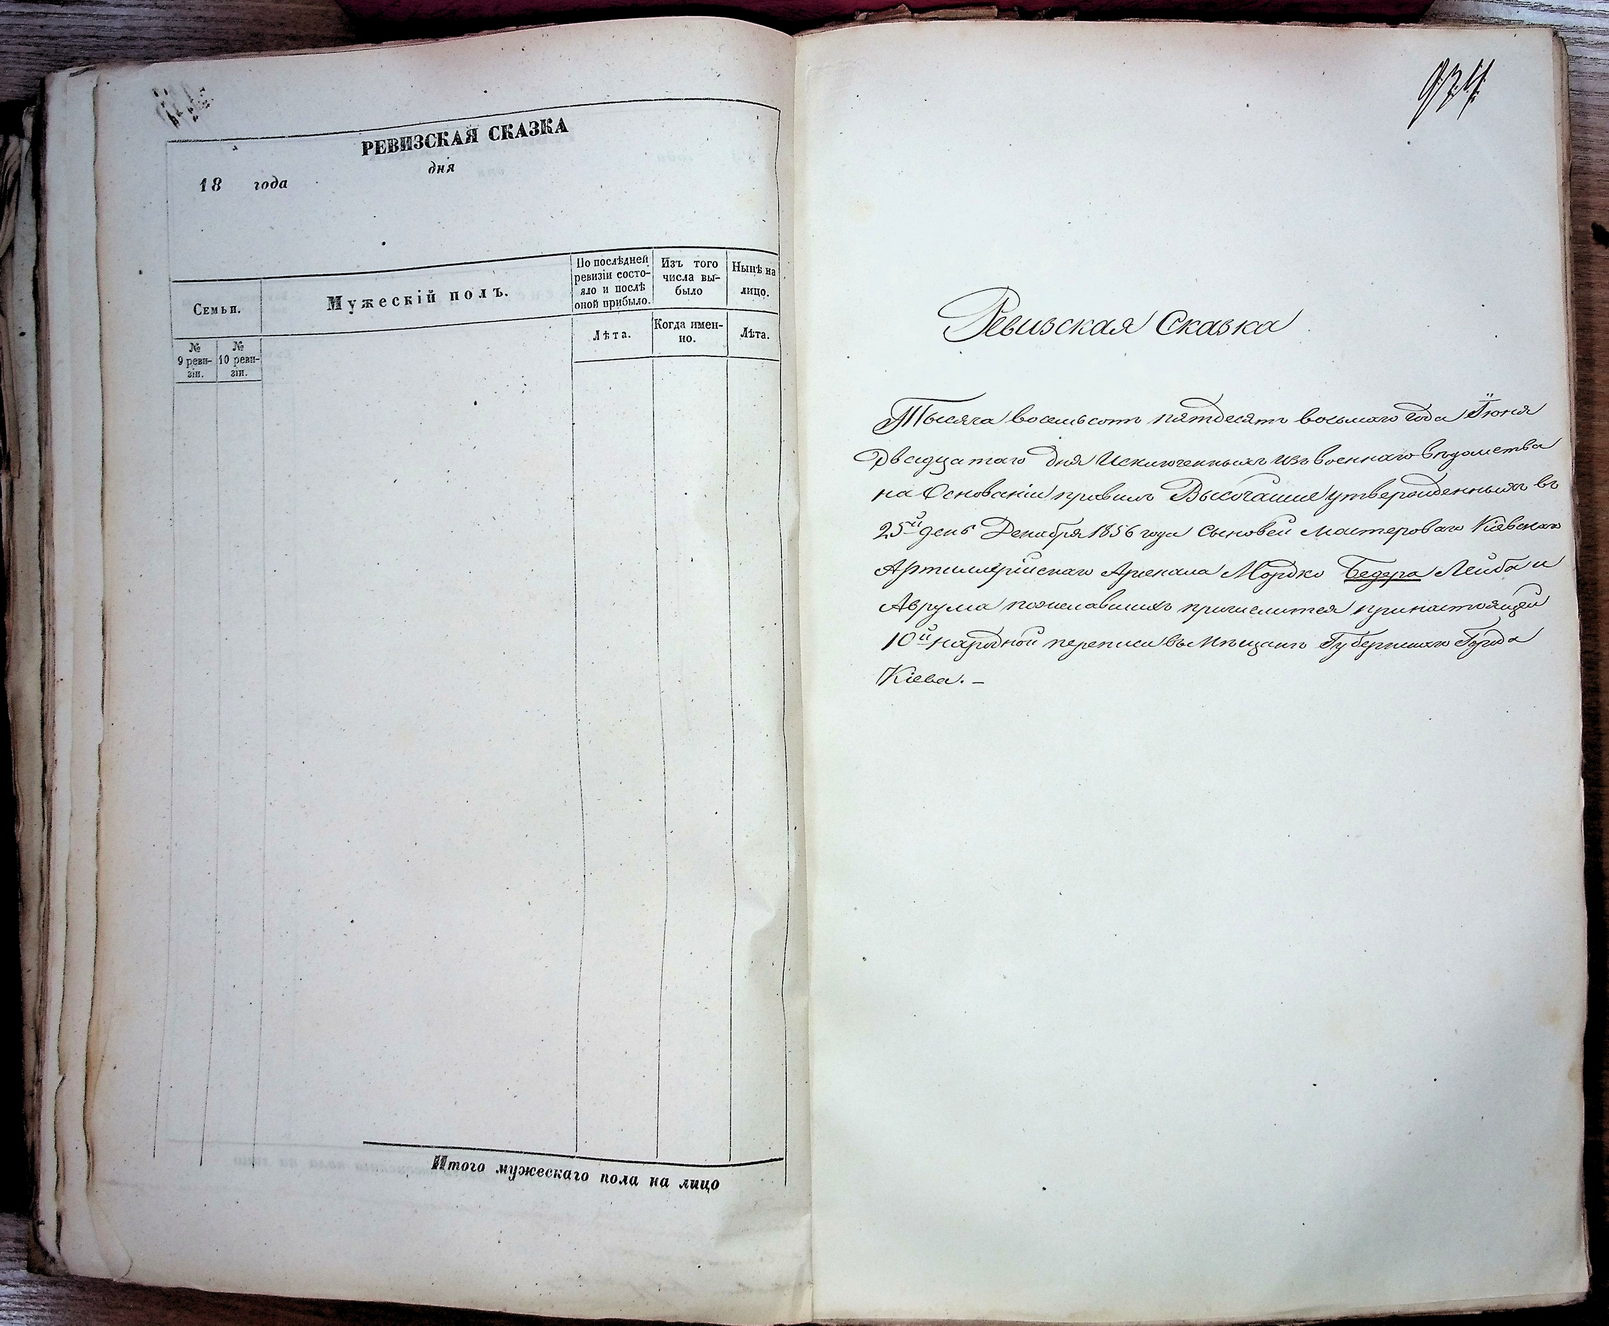 РЕВИЗСКАЯ СКАЗКА
дня
18 года
Семьи.
Мужескій полъ.
По послѣдней
ревизіи состо-
яло и послѣ
оной прибыло.
Изъ того
числа вы-
было
Нынѣ на
лицо.
Лѣта.
Когда имен-
но.
Лѣта.
№
9 реви-
зіи.
№
10 реви-
зіи.
Итого мужескаго пола на лицо
934
Ревизская Сказка
Тысяча восемьсотъ пятдесятъ восьмаго года Іюня
двадцатаго дня Исключенныхъ изъ военнаго вѣдомства
на Основаніи правилъ Высочайше утвержденныхъ въ
25й день Декабря 1856 года Сыновей мастероваго Кіевскаго
Артиллерійскаго Арсенала Мордко Бедера Лейба и
Аврума пожелавшихъ причислится при настоящей
10й народной переписи въ Мѣщане Губернскаго Города
Кіева. –